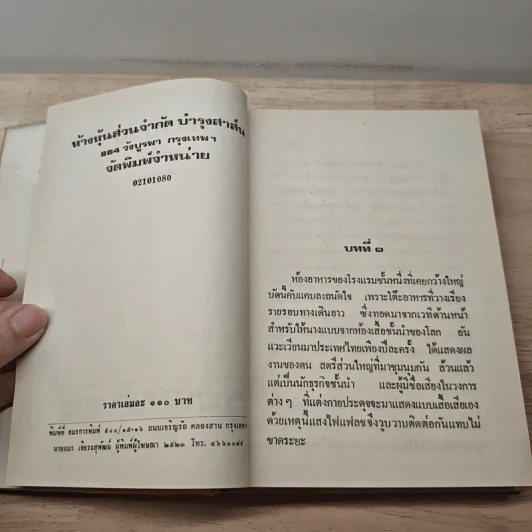 ห้างหุ้นส่วนจำกัด บำรุงสาส์น
๑๑๔ วังบูรพา กรุงเทพฯ
จัดพิมพ์จำหน่าย
02101080
ราคาเล่มละ ๑๑๐ บาท
พิมพ์ที่ อมรการพิมพ์ ๕๐๐/๑๕-๑๖ ถนนเจริญรัถ คลองสาน กรุงเทพฯ
นายอมร เจียรอสุพัฒน์ ผู้พิมพ์ผู้โฆษณา ๒๕๒๓ โทร.
บทที่ ๑
ห้องอาหารของโรงแรมชั้นหนึ่งที่เคยกว้างใหญ่
บัดนี้คับแคบลงถนัดใจ เพราะโต๊ะอาหารที่วางเรียง
รายรอบทางเดินยาว ซึ่งทอดมาจากเวทีด้านหน้า
สำหรับให้นางแบบจากห้องเสื้อชั้นนำของโลก อัน
แวะเวียนมาประเทศไทยเพียงปีละครั้ง ได้แสดงผล
งานของตน สตรีส่วนใหญ่ที่มาชุมนุมกัน ล้วนแล้ว
แต่เป็นนักธุรกิจชั้นนำ และผู้มีชื่อเสียงในวงการ
ต่าง ๆ ที่แต่งกายประดุจจะมาแสดงแบบเสื้อเสียเอง
ด้วยเหตุนี้แสงไฟแฟลชจึงวูบวาบติดต่อกันแทบไม่
ขาดระยะ